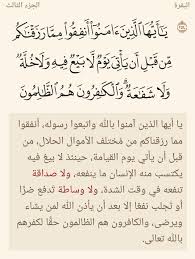 الجزء الثالث
البقرة
يَا أَيُّهَا الَّذِينَ ءَامَنُوٓا۟ أَنفِقُوا۟ مِمَّا رَزَقْنَٰكُم
مِّن قَبْلِ أَن يَأْتِىَ يَوْمٌ لَّا بَيْعٌ فِيهِ وَلَا خُلَّةٌ
وَلَا شَفَٰعَةٌ وَٱلْكَٰفِرُونَ هُمُ ٱلظَّٰلِمُونَ
يا أيها الذين آمنوا بالله واتبعوا رسوله، أنفقوا
مما رزقناكم من مُختلف الأموال الحلال، من
قبل أن يأتي يوم القيامة، حينئذ لا بيع فيه
يكتسب منه الإنسان ما ينفعه، ولا صداقة
تنفعه في وقت الشدة، ولا وساطة تدفع ضرًا
أو تجلب نفعًا إلا بعد أن يأذن الله لمن يشاء
ويرضى، والكافرون هم الظالمون حقًّا لكفرهم
بالله تعالى.